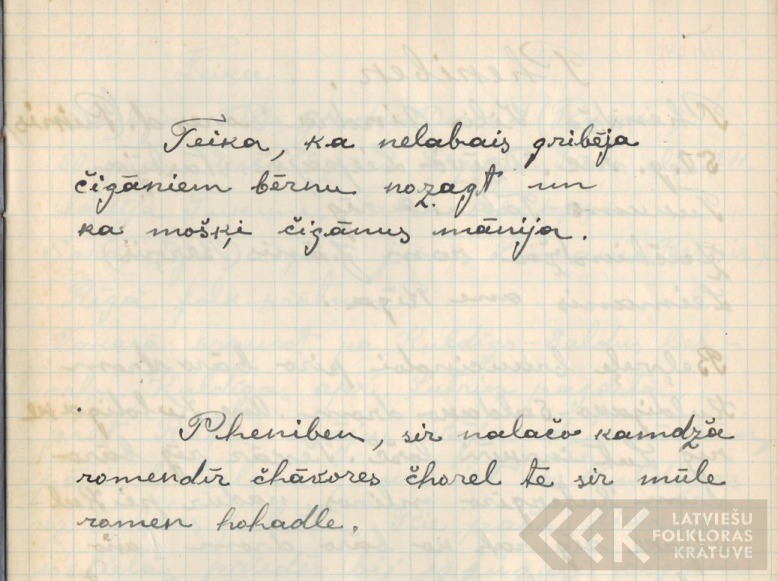 Teika, ka nelabais gribēja
čigāniem bērnu nozagt un
ka mošķi čigānus mānija.
Pheniben, sir nalačo kamdža
romendīr čhāvores čhorel te sir mūle
romen hohadle.
LATVIEŠU
FOLKLORAS
KRĀTUVE